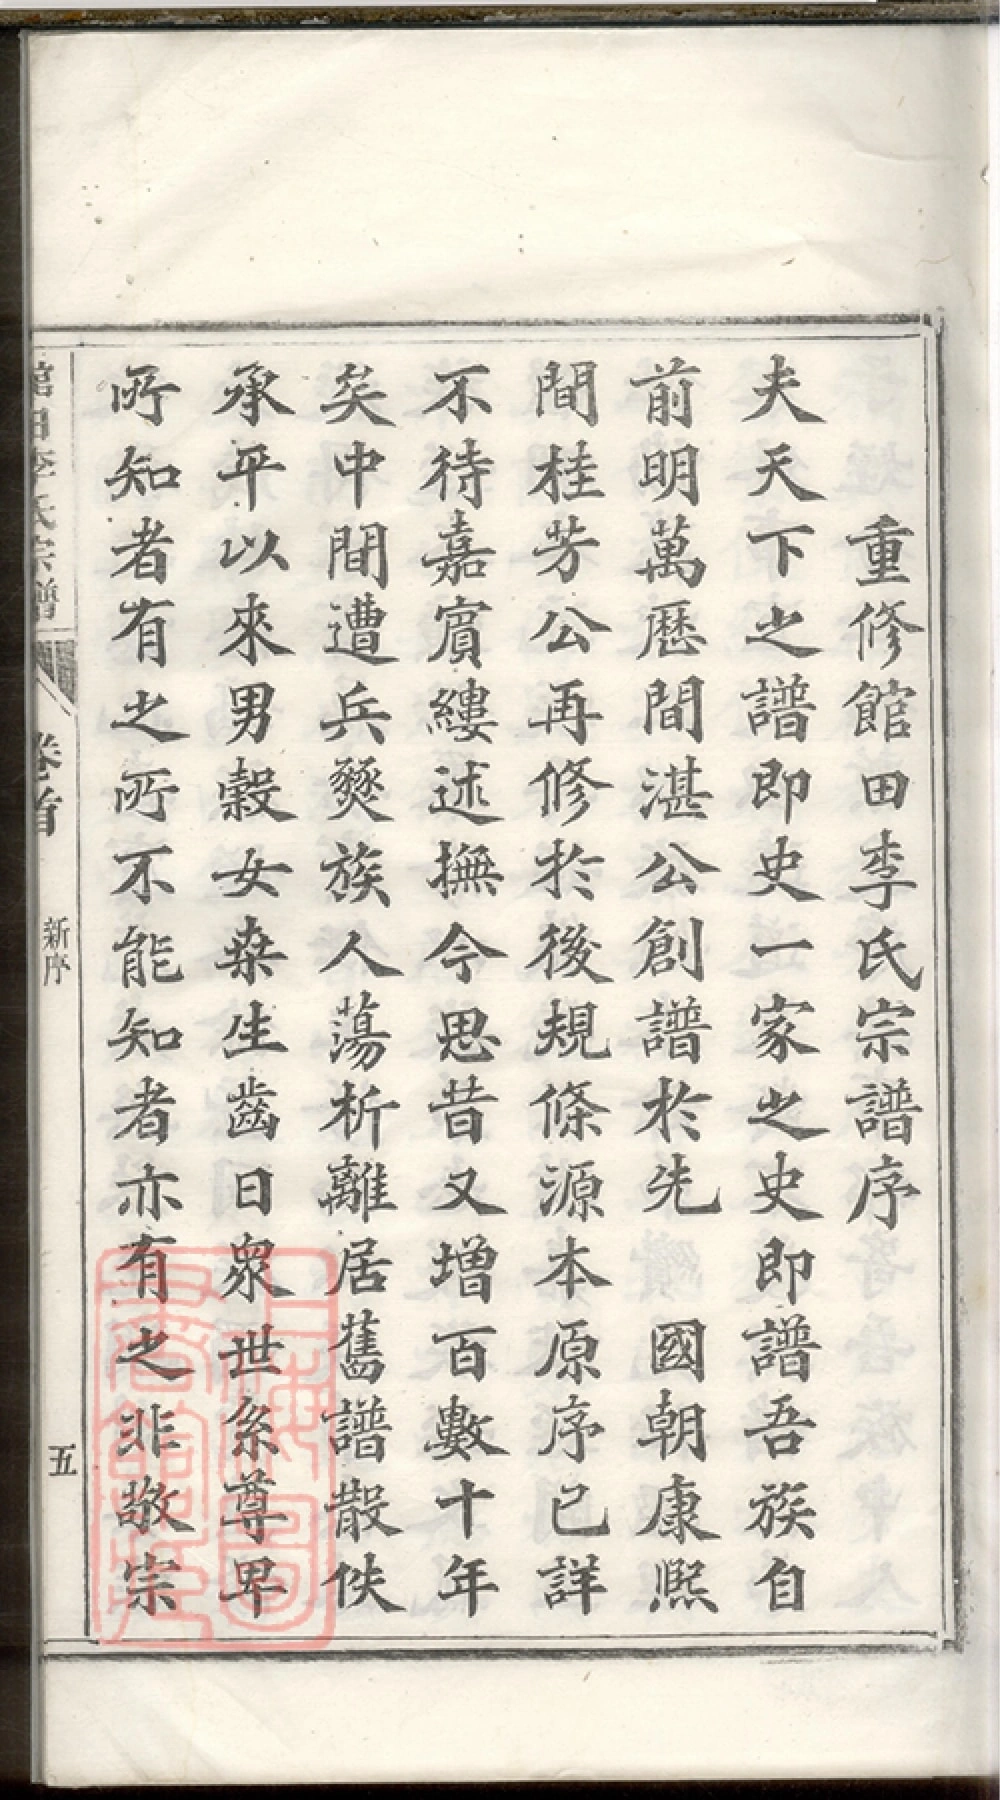 重修館田李氏宗譜序
夫天下之譜即史一家之史即譜吾族自
前明萬歷間湛公創譜於先　國朝康熙
間桂芳公再修於後規條源本原序已詳
不待嘉賓縷述撫今思昔又增百數十年
矣中間遭兵燹族人蕩析離居舊譜散佚
承平以來男穀女桒生齒日衆世系尊卑
所知者有之所不能知者亦有之非敬宗
館田李氏宗譜
卷首
新序
五
上海圖書館藏